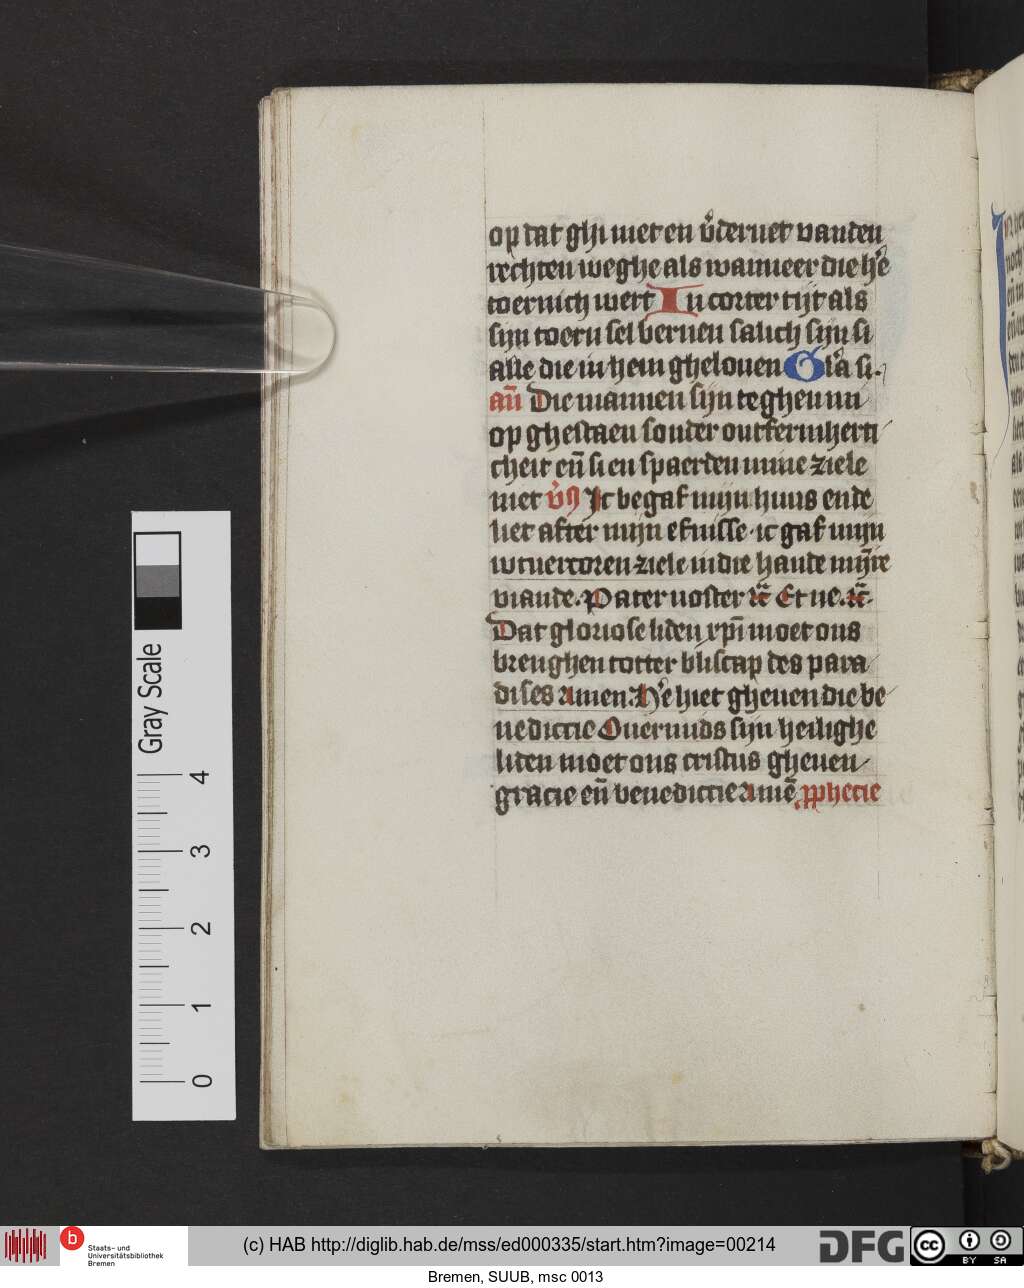 op dat ghi niet en v̾deruet vanden
rechten weghe als wanneer die h̾e
toernich wert In corter tijt als
sijn toern sel bernen salich sijn si
alle die in hem ghelouen Gl̾a si.
an̄ Die mannen sijn teghen mi
op ghestaen sonder outfermherti
cheit en̄ si en spaerden mine ziele
niet v̾s Ic begaf mijn huus ende
liet after mijn efnisse ic gaf mijn
wtuercoren ziele in die hande mijn̄re
viande. Pater noster rc̄ Et ne. rc̄.
Dat gloriose liden xp̄i moet ons
brenghen totter bliscap des para
dises amen. H̾e hiet gheuen die be
nedictie Ouermids sijn heilighe
liden moet ons cristus gheuen
gracie en̄ benedictie amē p̲phecie
Gray Scale
4
3
2
1
0
b
Staats- und
Universitätsbibliothek
Bremen
(c) HAB http://diglib.hab.de/mss/ed000335/start.htm?image=00214
DFG
cc
BY SA
Bremen, SUUB, msc 0013